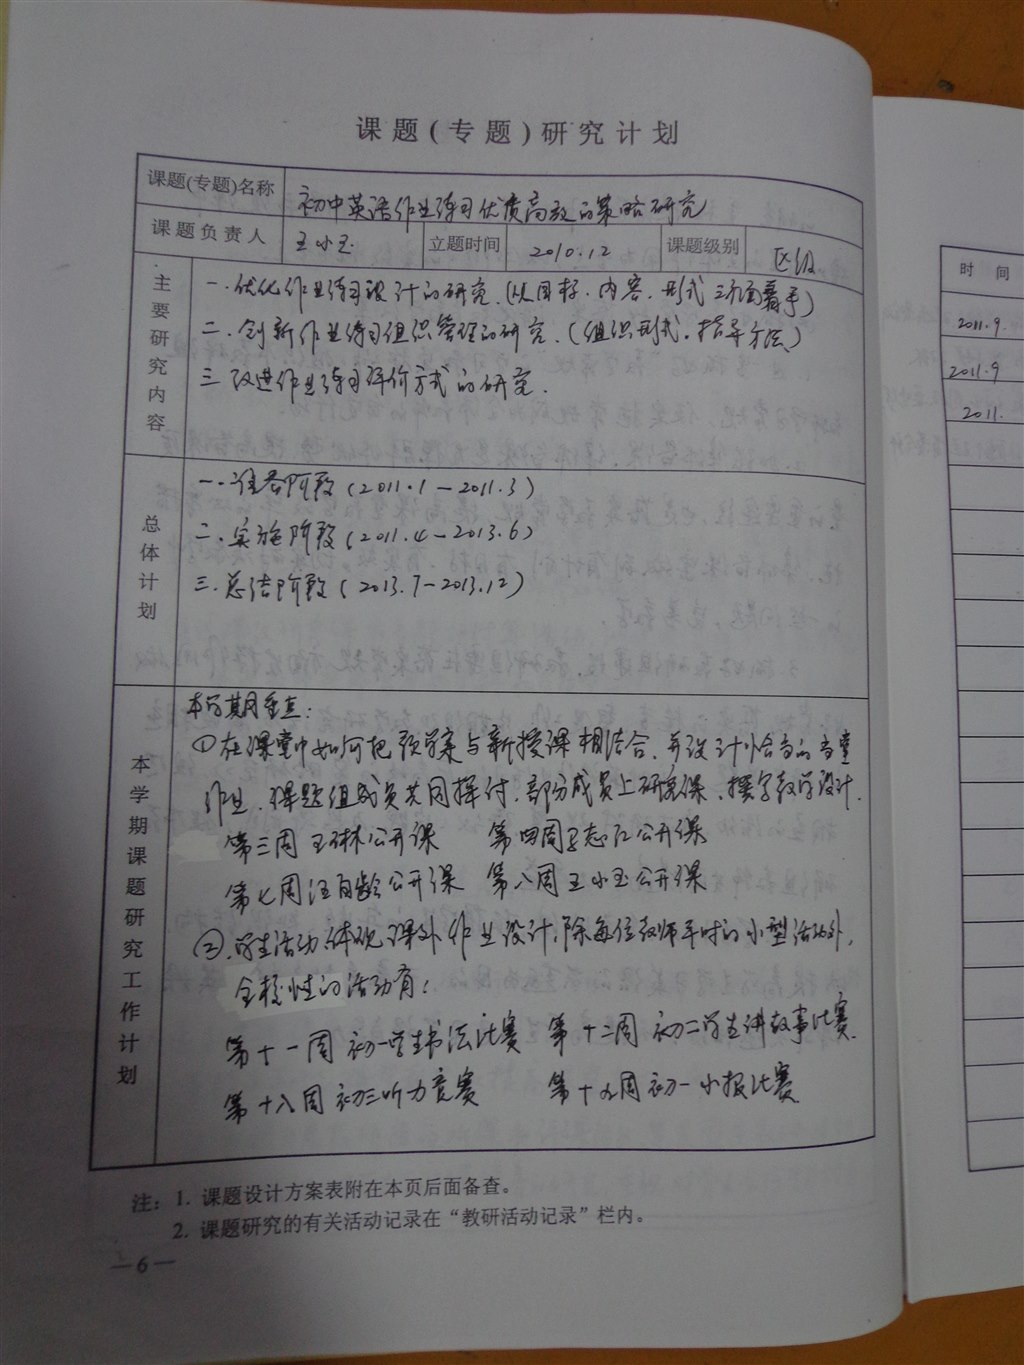 课题(专题)研究计划
课题(专题)名称 初中英语作业练习优质高效的策略研究
课题负责人 王小玉 立题时间 2010.12 课题级别 区级
主要研究内容
一.优化作业练习设计的研究.(从目标、内容、形式三方面着手)
二.创新作业练习组织管理的研究.(组织形式、指导方法)
三.改进作业练习评价方式的研究.
总体计划
一.准备阶段(2011.1—2011.3)
二.实施阶段(2011.4—2013.6)
三.总结阶段(2013.7—2013.12)
本学期课题研究工作计划
本学期重点:
①在课堂中如何把预学案与新授课相结合,并设计恰当的当堂
作业,课题组成员共同探讨,部分成员上研究课,撰写教学设计.
第三周王琳公开课 第四周王志江公开课
第七周汪自龄公开课 第八周王小玉公开课
②.学生活动体现课外作业设计,除每位教师平时的小型活动外,
全校性的活动有:
第十一周 初一学生书法比赛 第十二周 初二学生讲故事比赛.
第十八周 初三听力竞赛 第十九周初一小报比赛
注: 1. 课题设计方案表附在本页后面备查。
2. 课题研究的有关活动记录在“教研活动记录”栏内。
—6—
时 间
2011.9.
2011.9
2011.